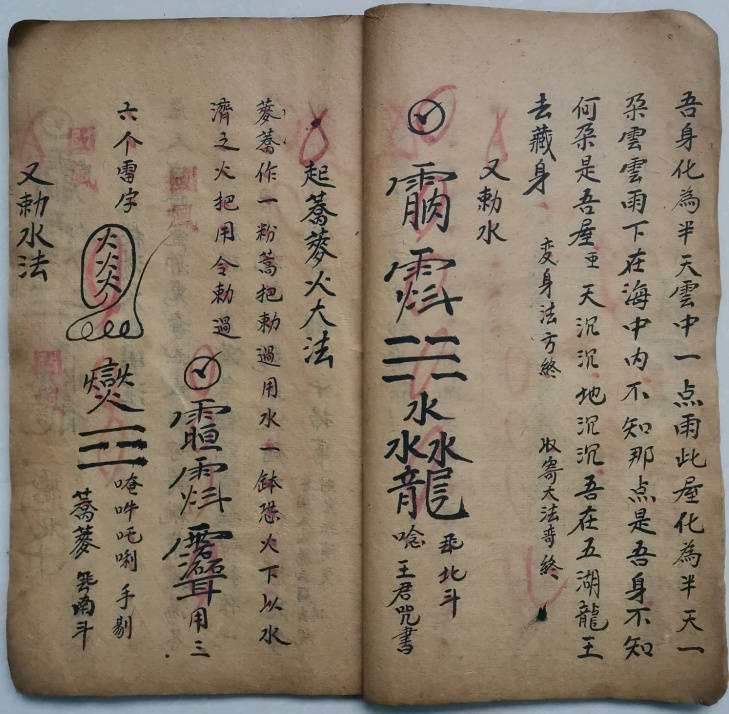 吾身化為半天雲中一点雨此屋化為半天一
朶雲雲雨下在海中内不知那点是吾身不知
何朶是吾屋 天沉沉地沉沉吾在五湖龍王
去藏身 変身法方終 収寄大法竒終
又勅水
水
水水
龍 唸王君咒書 北斗
起蒿荽火大法
荽蒿作一粉蒿把勅過用水一鉢恐火下以水
濟之火把用令勅過
用三
六个雷字
火火火
唵吽吒唎 手剔
蒿荽 南斗
又勅水法